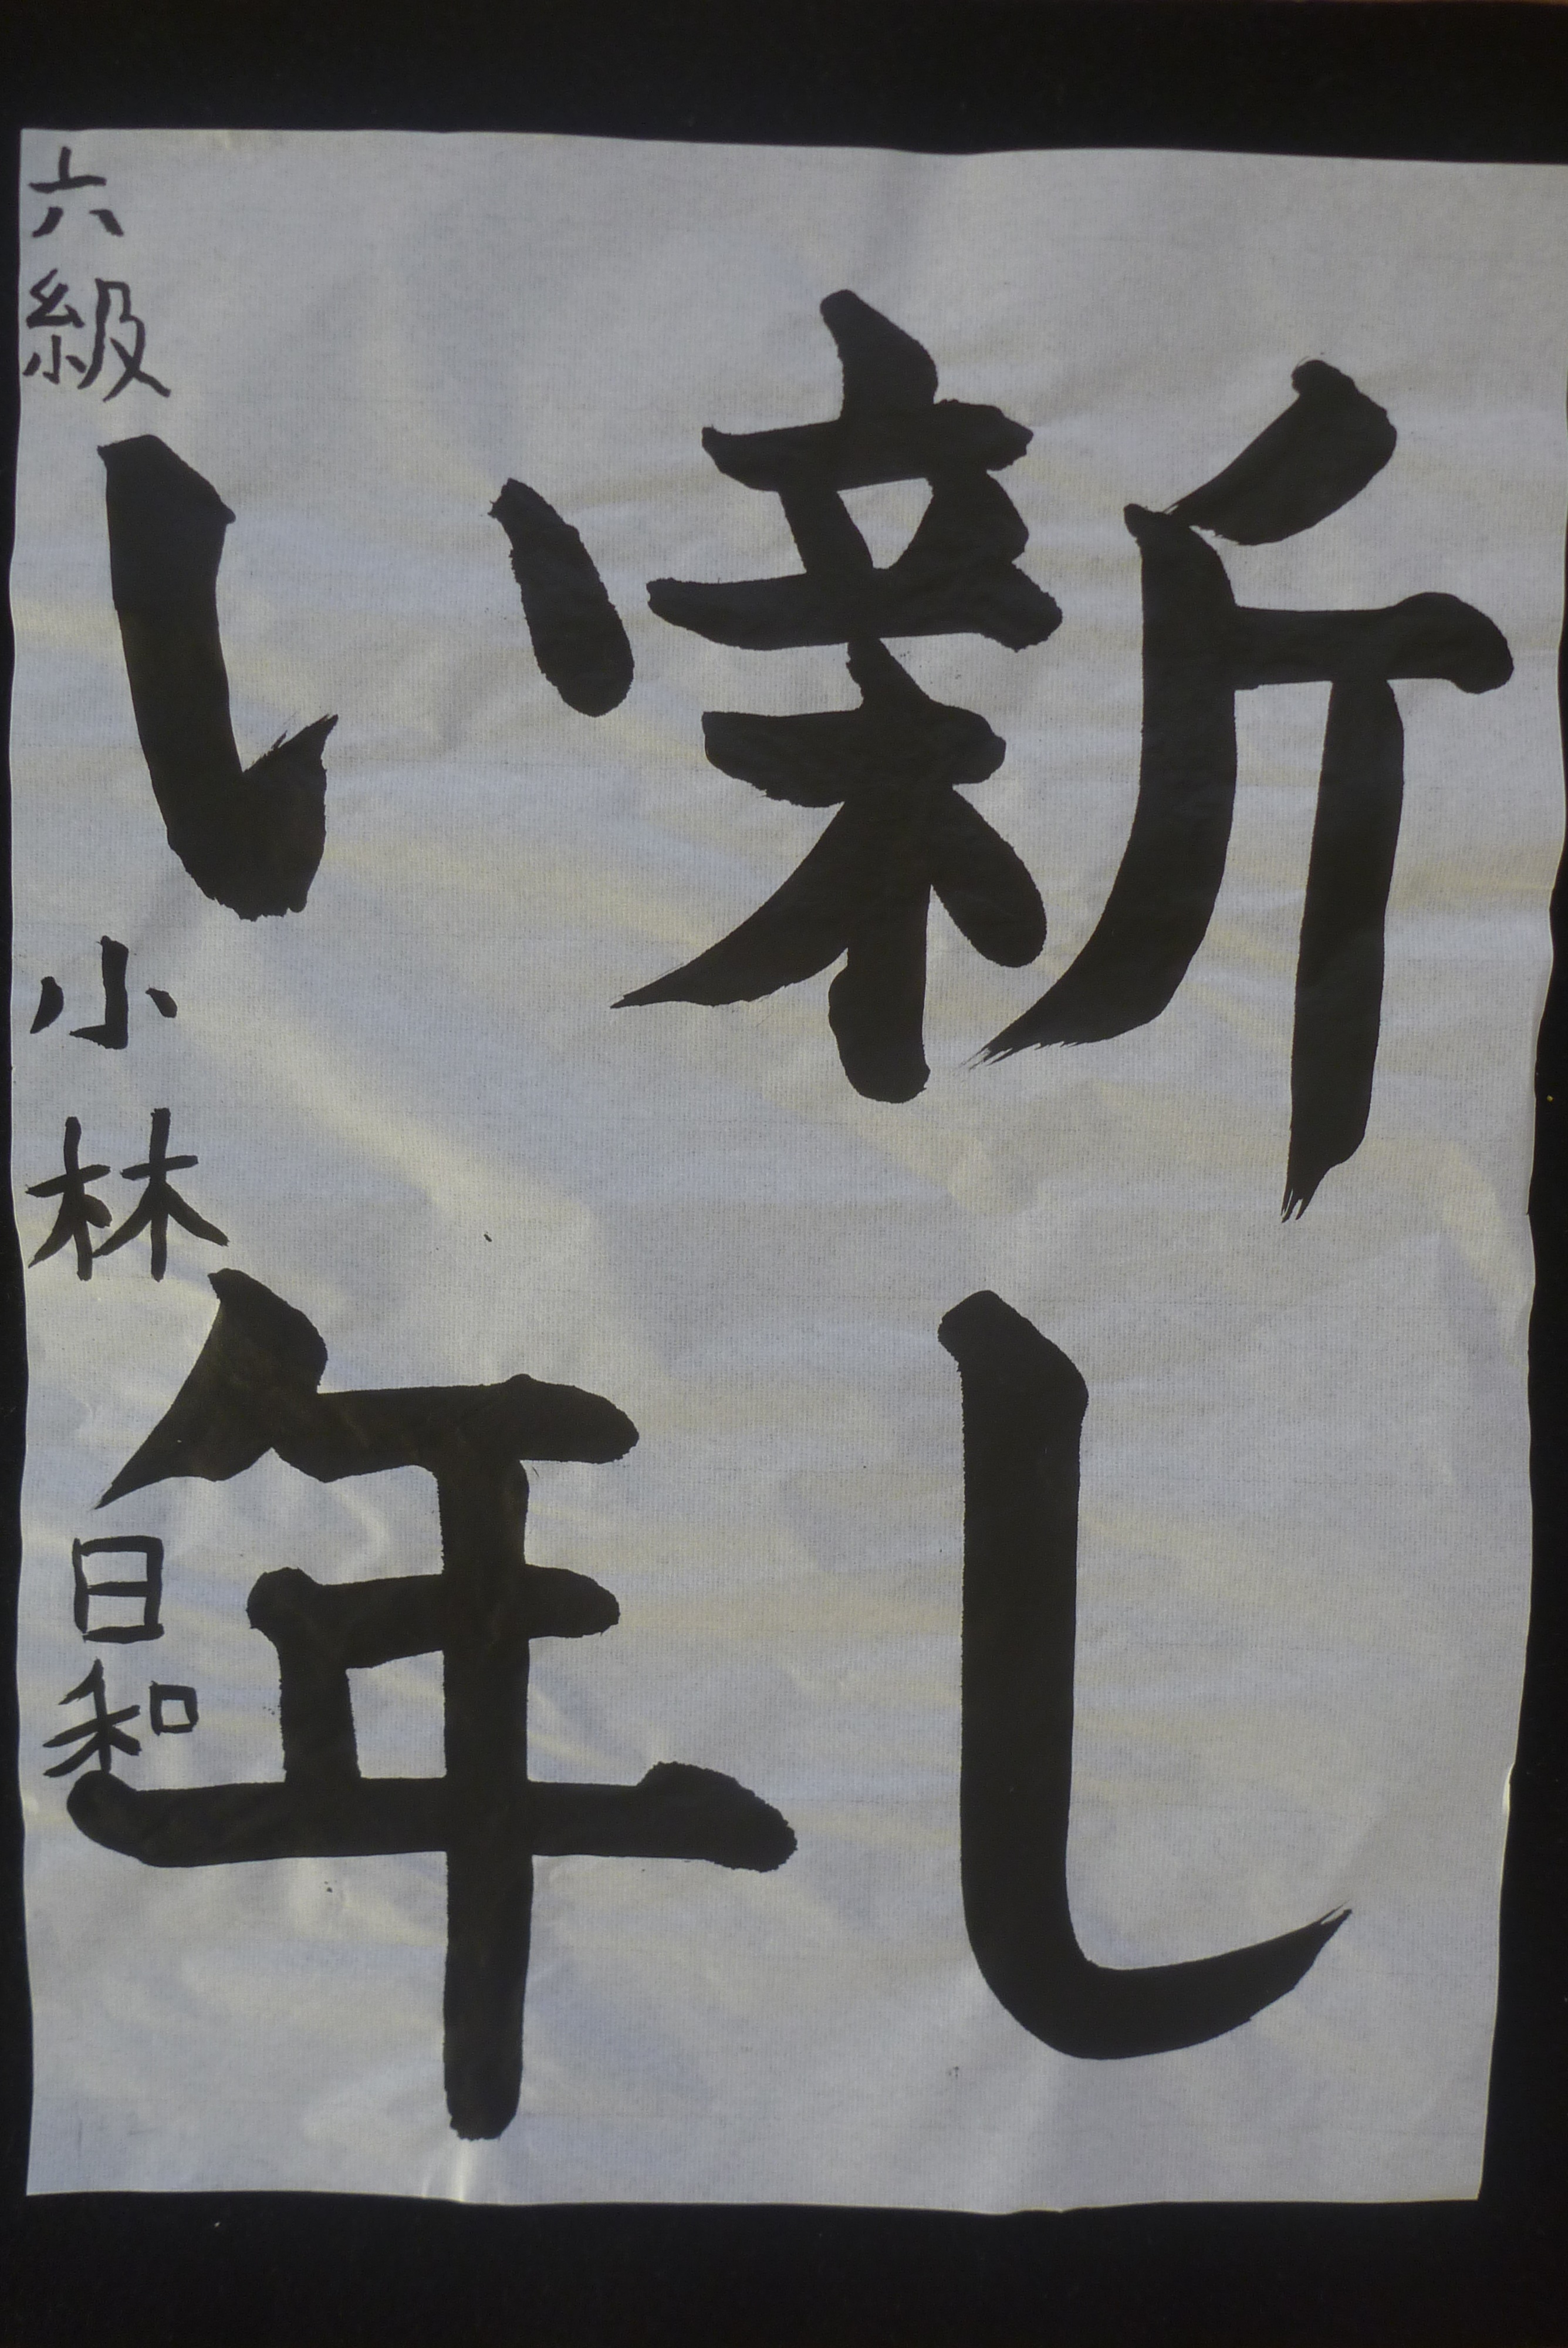 新し
い年
六級 小林 日和